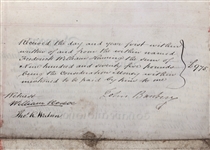 Received the day and year first within
written of and from the within named
Frederick William Fleming the sum of
Nine hundred and seventy five pounds
being the Consideration Money within
mentioned to be paid by him to me
£975
John Barberry
Witness
William Rowe
Thos. R. Wilson